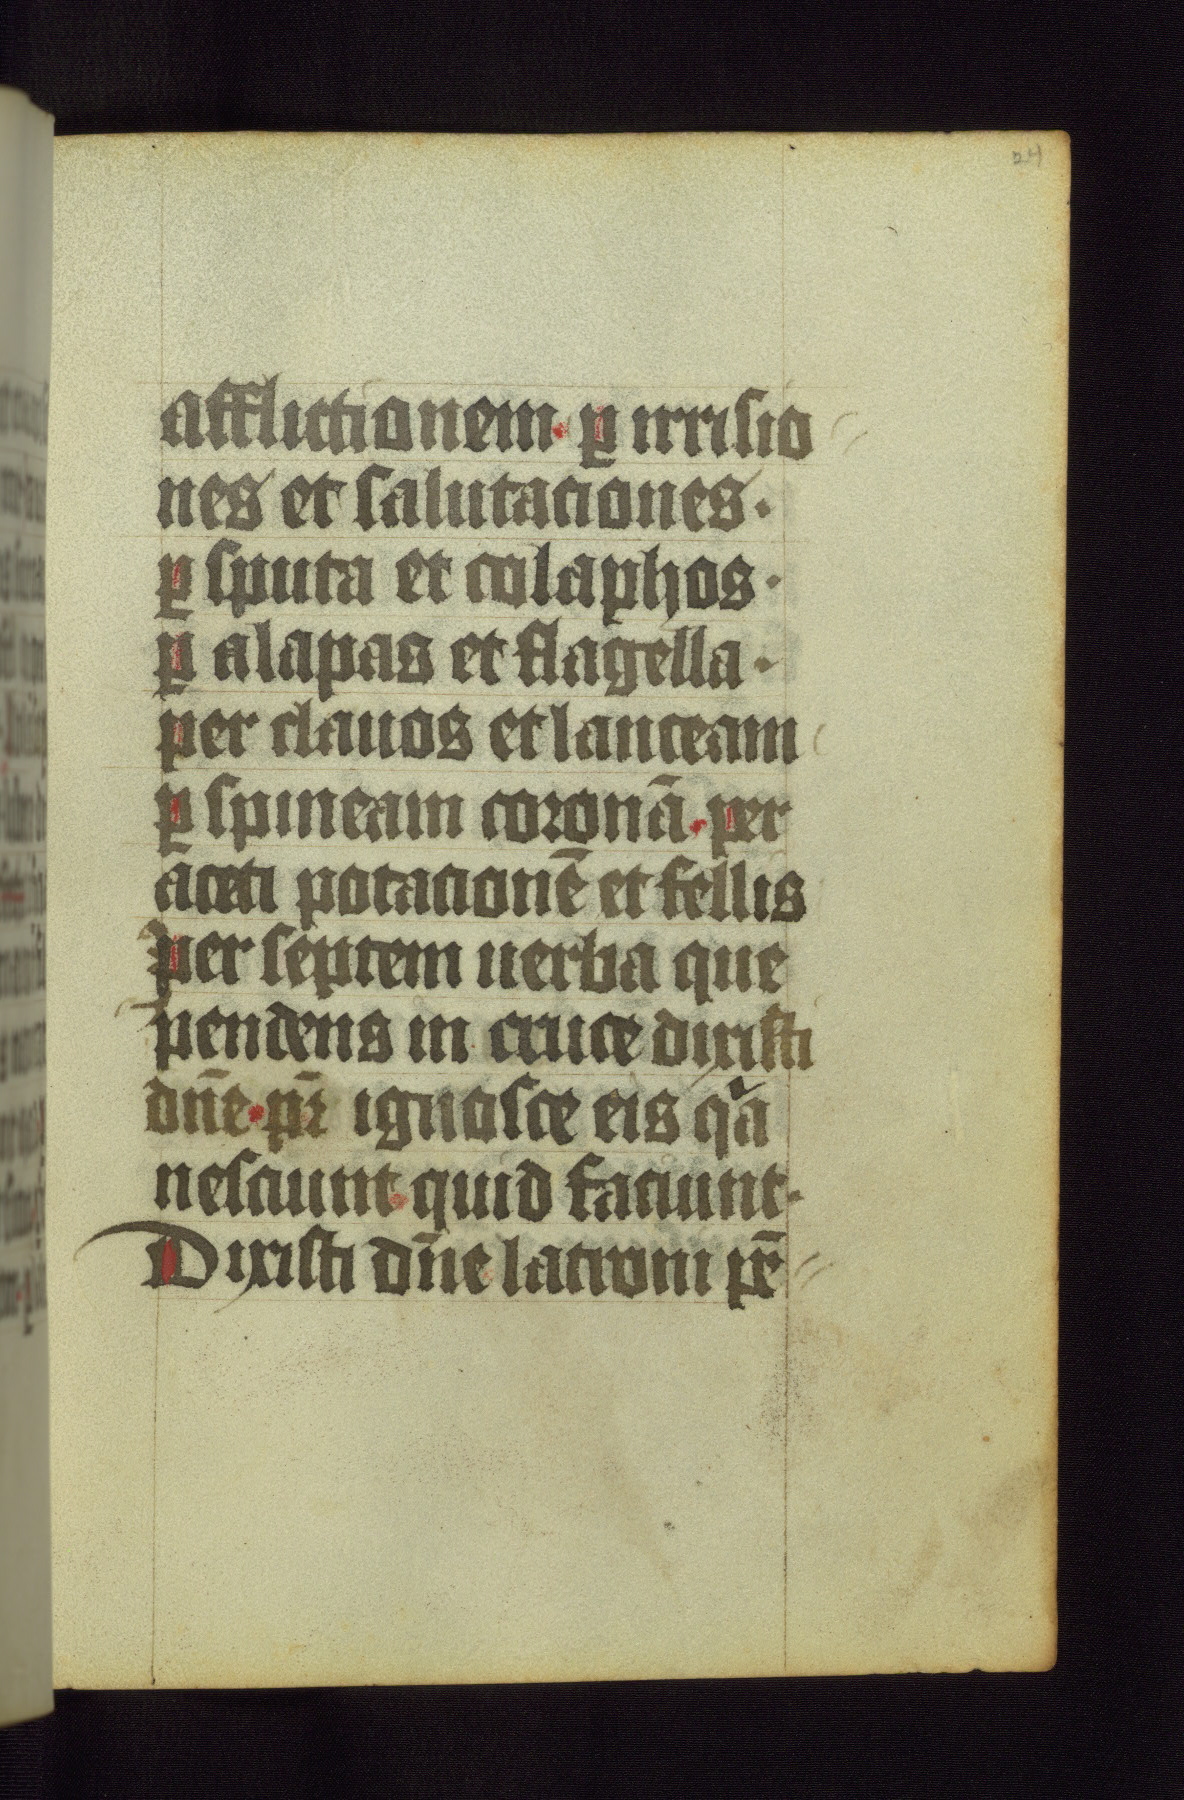 24
afflictionem. ꝑ irrisio
nes et salutaciones.
ꝑ sputa et colaphos.
ꝑ alapas et flagella.
per clauos et lanceam
ꝑ spineam coronā. per
aceti potacionē et fellis
per septem uerba que
pendens in cruce dixisti
dn̄e. pr̄ ignosce eis qͣa
nesciunt. quid faciunt.
Dixisti dn̄e latroni pr̄